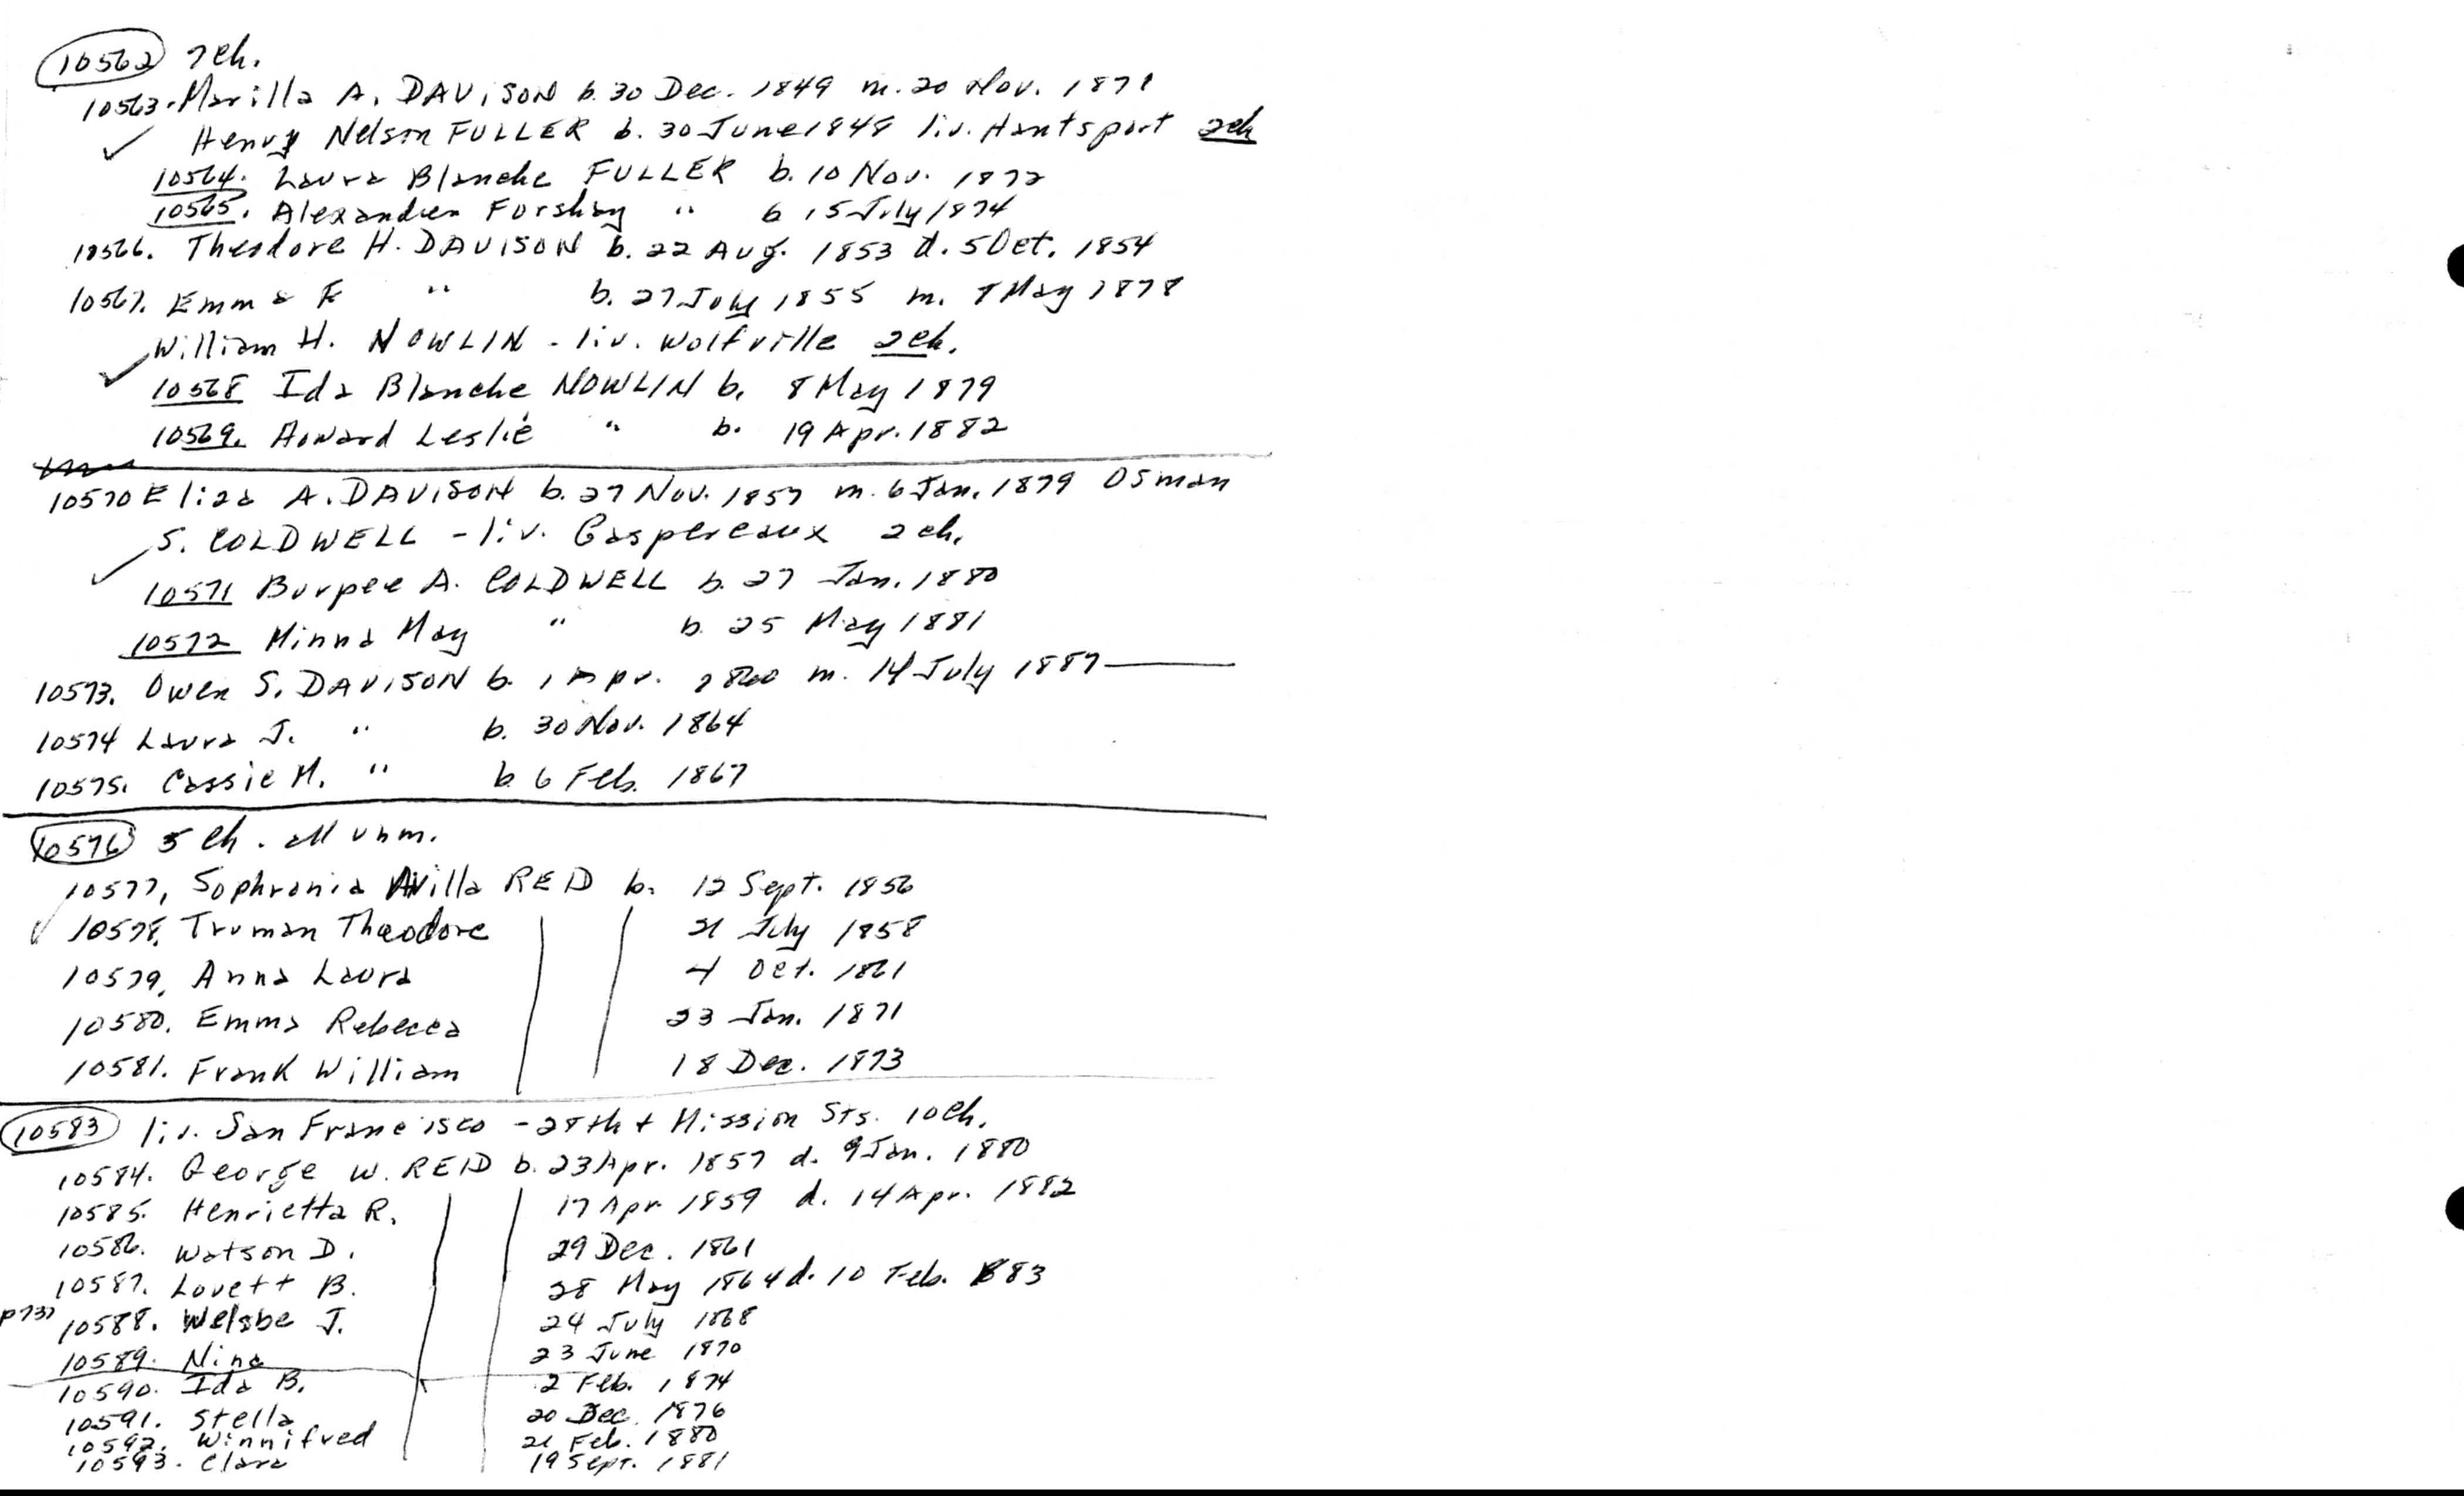 10562 7ch.
10563. Marilla A. DAVISON b. 30 Dec. 1849 m. 20 Nov. 1871
✓ Henry Nelson FULLER b. 30 June 1848 liv. Hantsport 2ch
10564. Laura Blanche FULLER b. 10 Nov. 1872
10565. Alexandra Forshay " b 15 July 1874
10566. Theodore H. DAVISON b. 22 Aug. 1853 d. 5 Oct. 1854
10567. Emma F " b. 27 July 1855 m. 8 May 1878
William H. NOWLIN - liv. Wolfville 2ch.
✓ 10568 Ida Blanche NOWLIN b. 8 May 1879
10569. Howard Leslie " b. 19 Apr. 1882
10570 Eliza A. DAVISON b. 27 Nov. 1857 m. 6 Jan. 1879 Osman
S. COLDWELL - liv. Gaspereaux 2 ch.
✓ 10571 Burpee A. COLDWELL b. 27 Jan. 1880
10572 Minna May " b. 25 May 1881
10573. Owen S. DAVISON b. 1 Apr. 1860 m. 14 July 1887 ——
10574 Laura J. " b. 30 Nov. 1864
10575. Cassie M. " b. 6 Feb. 1867
10576 5 ch. all unm.
10577. Sophronia Avilla REID b. 12 Sept. 1856
✓ 10578. Truman Theodore 21 July 1858
10579. Anna Laura 4 Oct. 1861
10580. Emma Rebecca 23 Jan. 1871
10581. Frank William 18 Dec. 1873
10583 liv. San Francisco - 28th + Mission Sts. 10ch.
10584. George W. REID b. 23 Apr. 1857 d. 9 Jan. 1880
10585. Henrietta R. 17 Apr 1859 d. 14 Apr. 1882
10586. Watson D. 29 Dec. 1861
10587. Lovett B. 28 May 1864 d. 10 Feb. 1883
p737 10588. Welsbe J. 24 July 1868
10589. Nina 23 June 1870
10590. Ida B. 2 Feb. 1874
10591. Stella 20 Dec. 1876
10592. Winnifred 21 Feb. 1880
10593. Clara 19 Sept. 1881